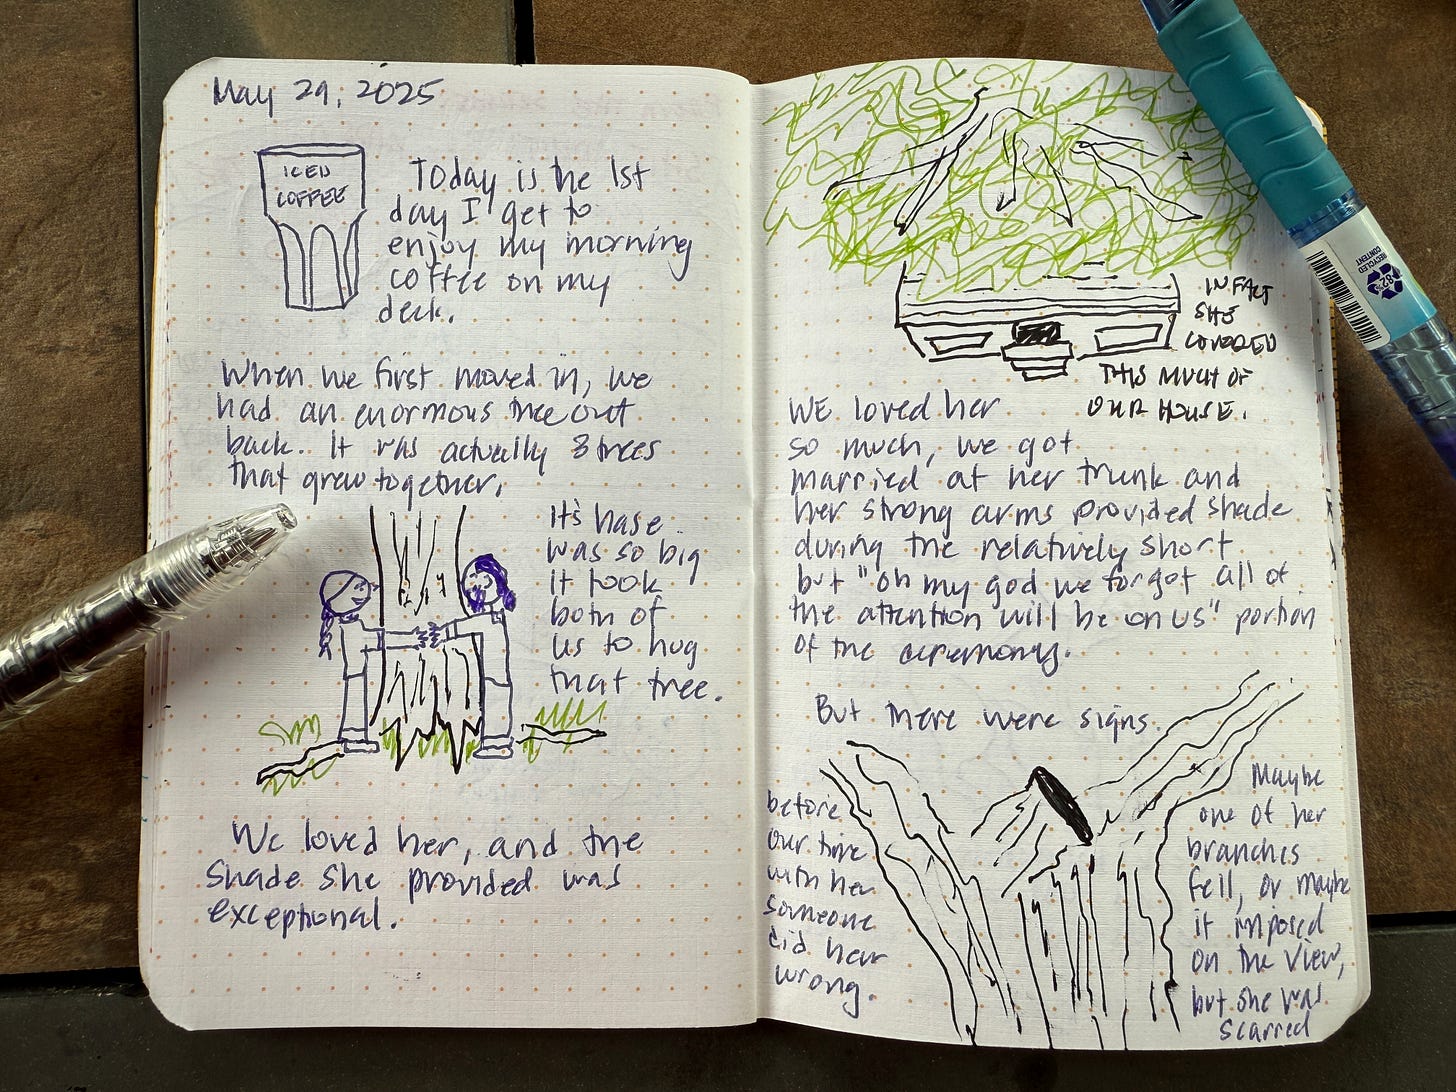 May 29, 2025
ICED
COFFEE
Today is the 1st
day I get to
enjoy my morning
coffee on my
deck.
When we first moved in, we
had an enormous tree out
back. It was actually 3 trees
that grew together.
It's base
was so big
it took
both of
us to hug
that tree.
We loved her, and the
shade she provided was
exceptional.
IN FACT
SHE
COVERED
THIS MUCH OF
OUR HOUSE.
WE loved her
so much, we got
married at her trunk and
her strong arms provided shade
during the relatively short
but "oh my god we forgot all of
the attention will be on us" portion
of the ceremony.
But there were signs.
before
our time
with her
someone
did her
wrong.
Maybe
one of her
branches
fell, or maybe
it imposed
on the view,
but she was
scarred
82%
RECYCLED
CONTENT